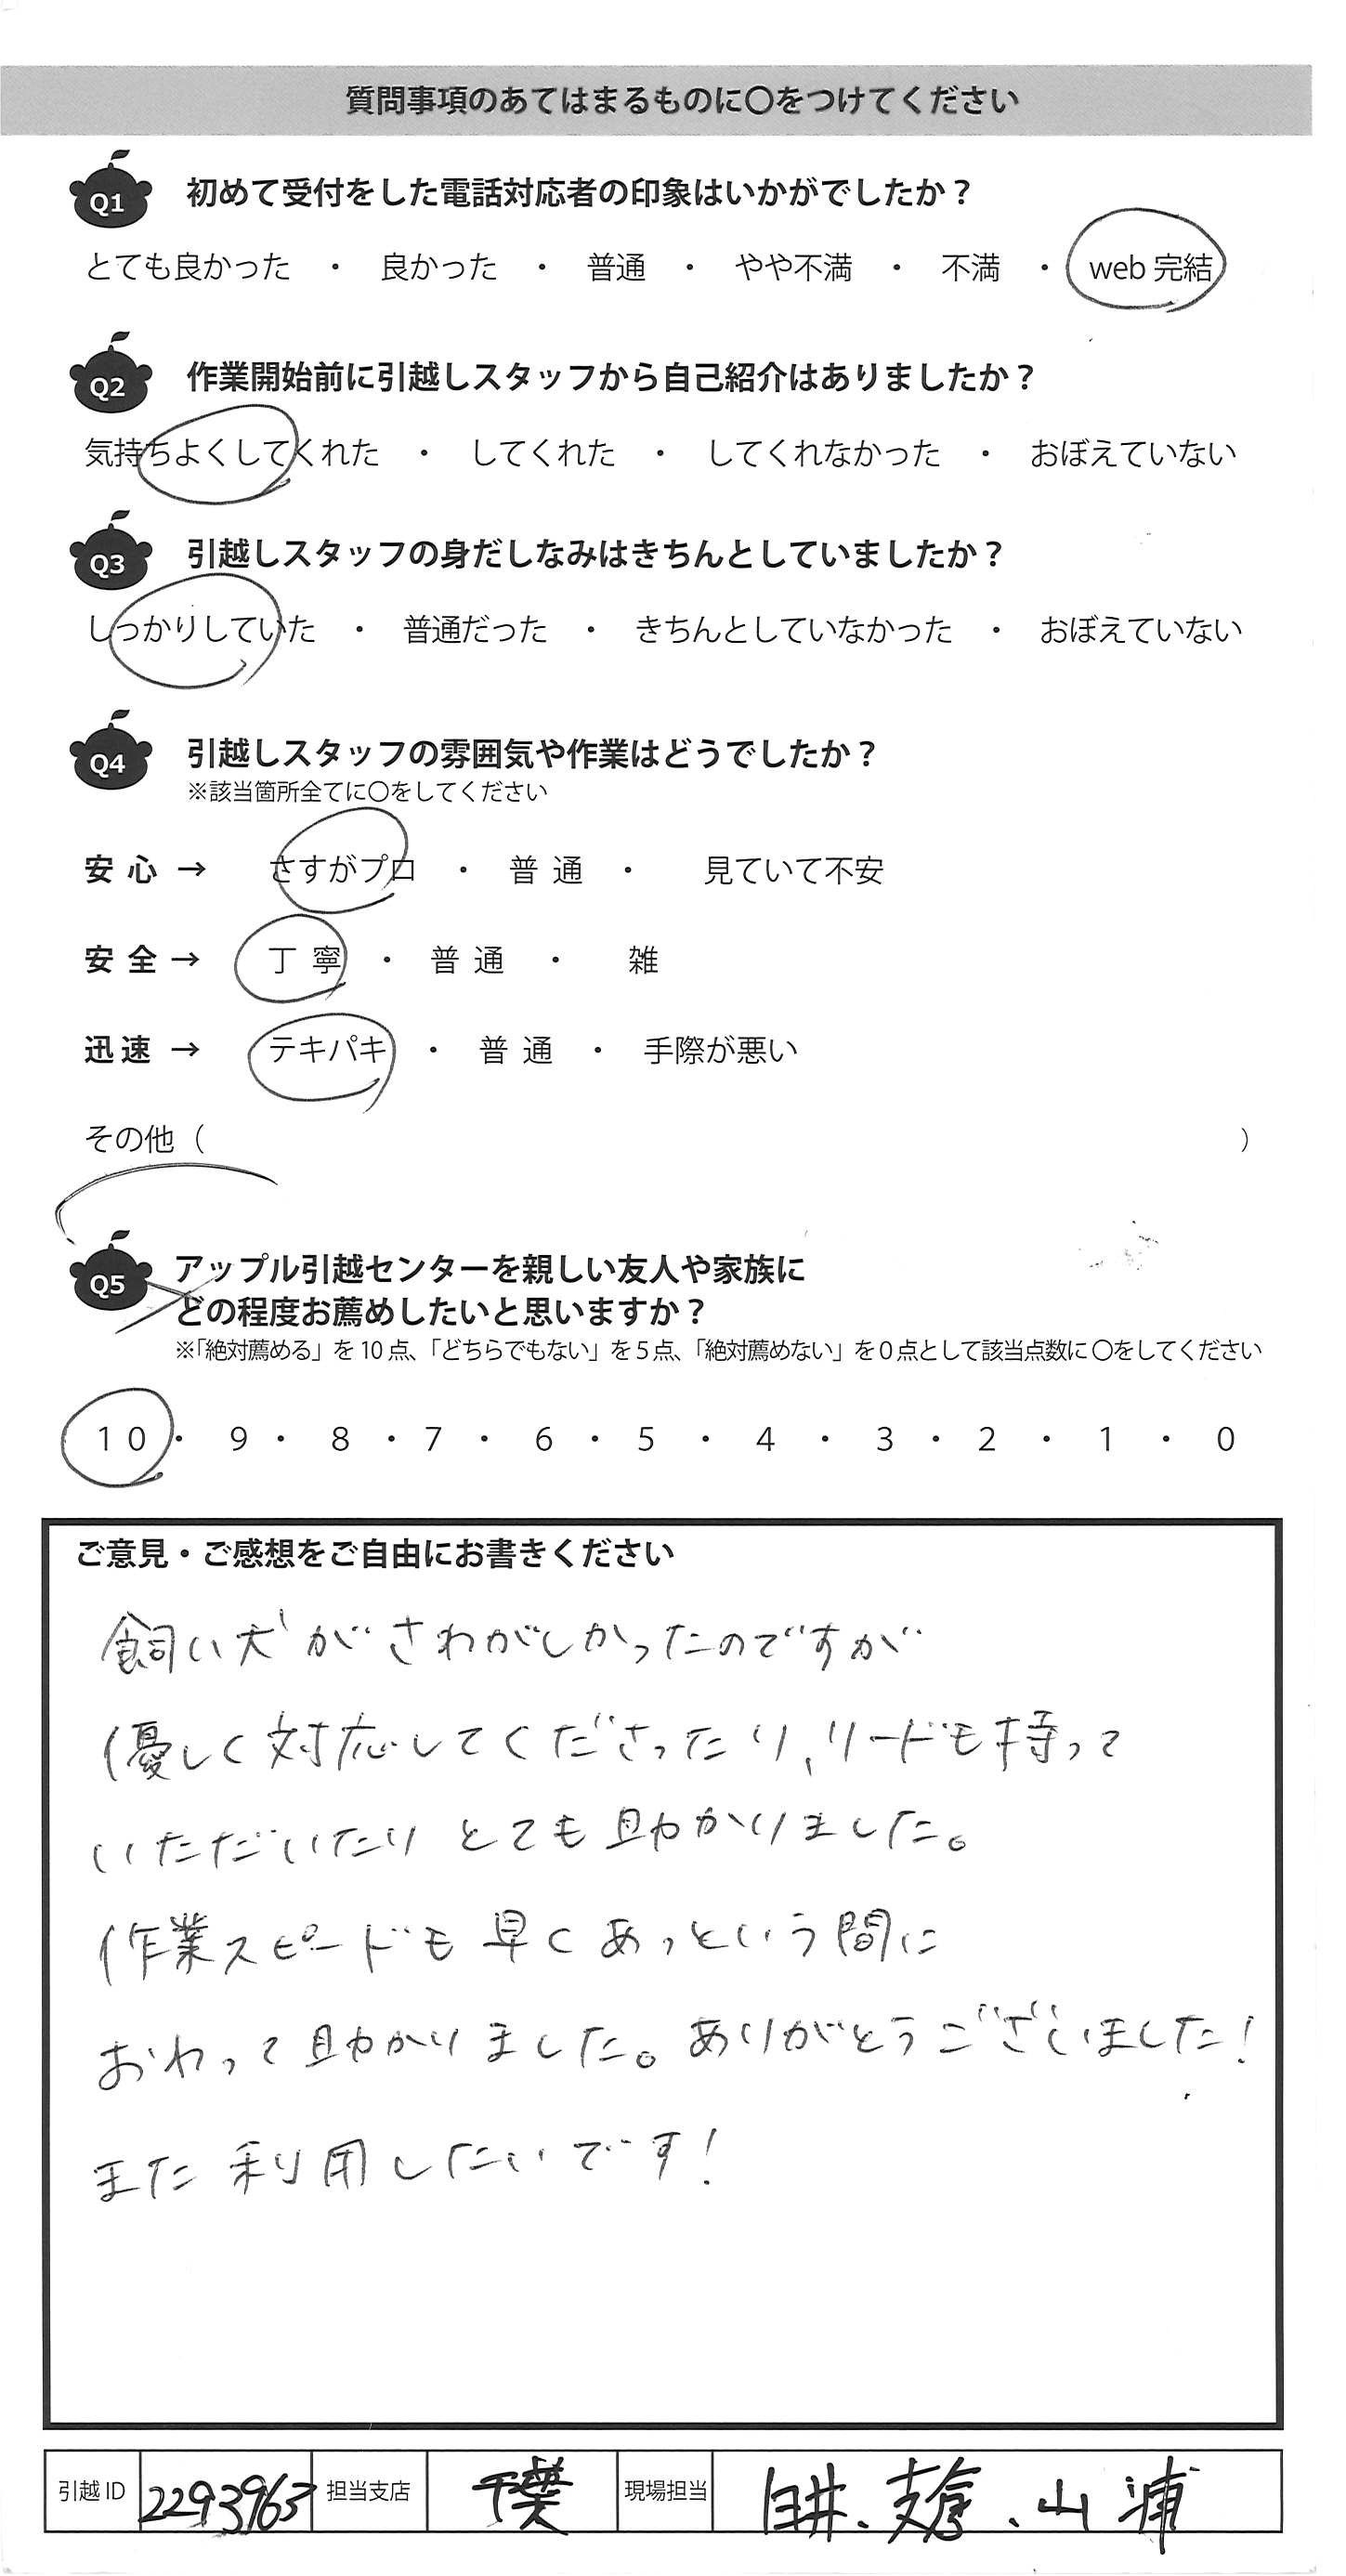 質問事項のあてはまるものに〇をつけてください
Q1 初めて受付をした電話対応者の印象はいかがでしたか？
とても良かった ・ 良かった ・ 普通 ・ やや不満 ・ 不満 ・ web 完結
Q2 作業開始前に引越しスタッフから自己紹介はありましたか？
気持ちよくしてくれた ・ してくれた ・ してくれなかった ・ おぼえていない
Q3 引越しスタッフの身だしなみはきちんとしていましたか？
しっかりしていた ・ 普通だった ・ きちんとしていなかった ・ おぼえていない
Q4 引越しスタッフの雰囲気や作業はどうでしたか？
※該当箇所全てに〇をしてください
安心 → さすがプロ ・ 普通 ・ 見ていて不安
安全 → 丁寧 ・ 普通 ・ 雑
迅速 → テキパキ ・ 普通 ・ 手際が悪い
その他（ ）
Q5 アップル引越センターを親しい友人や家族に
どの程度お薦めしたいと思いますか？
※「絶対薦める」を 10 点、「どちらでもない」を 5 点、「絶対薦めない」を 0 点として該当点数に 〇をしてください
10 ・ 9 ・ 8 ・ 7 ・ 6 ・ 5 ・ 4 ・ 3 ・ 2 ・ 1 ・ 0
ご意見・ご感想をご自由にお書きください
飼い犬がさわがしかったのですが
優しく対応してくださったり、リードも持って
いただいたりとても助かりました。
作業スピードも早くあっという間に
おわって助かりました。ありがとうございました！
また利用したいです！
引越 ID 2293963 担当支店 千葉 現場担当 臼井、支倉、山浦